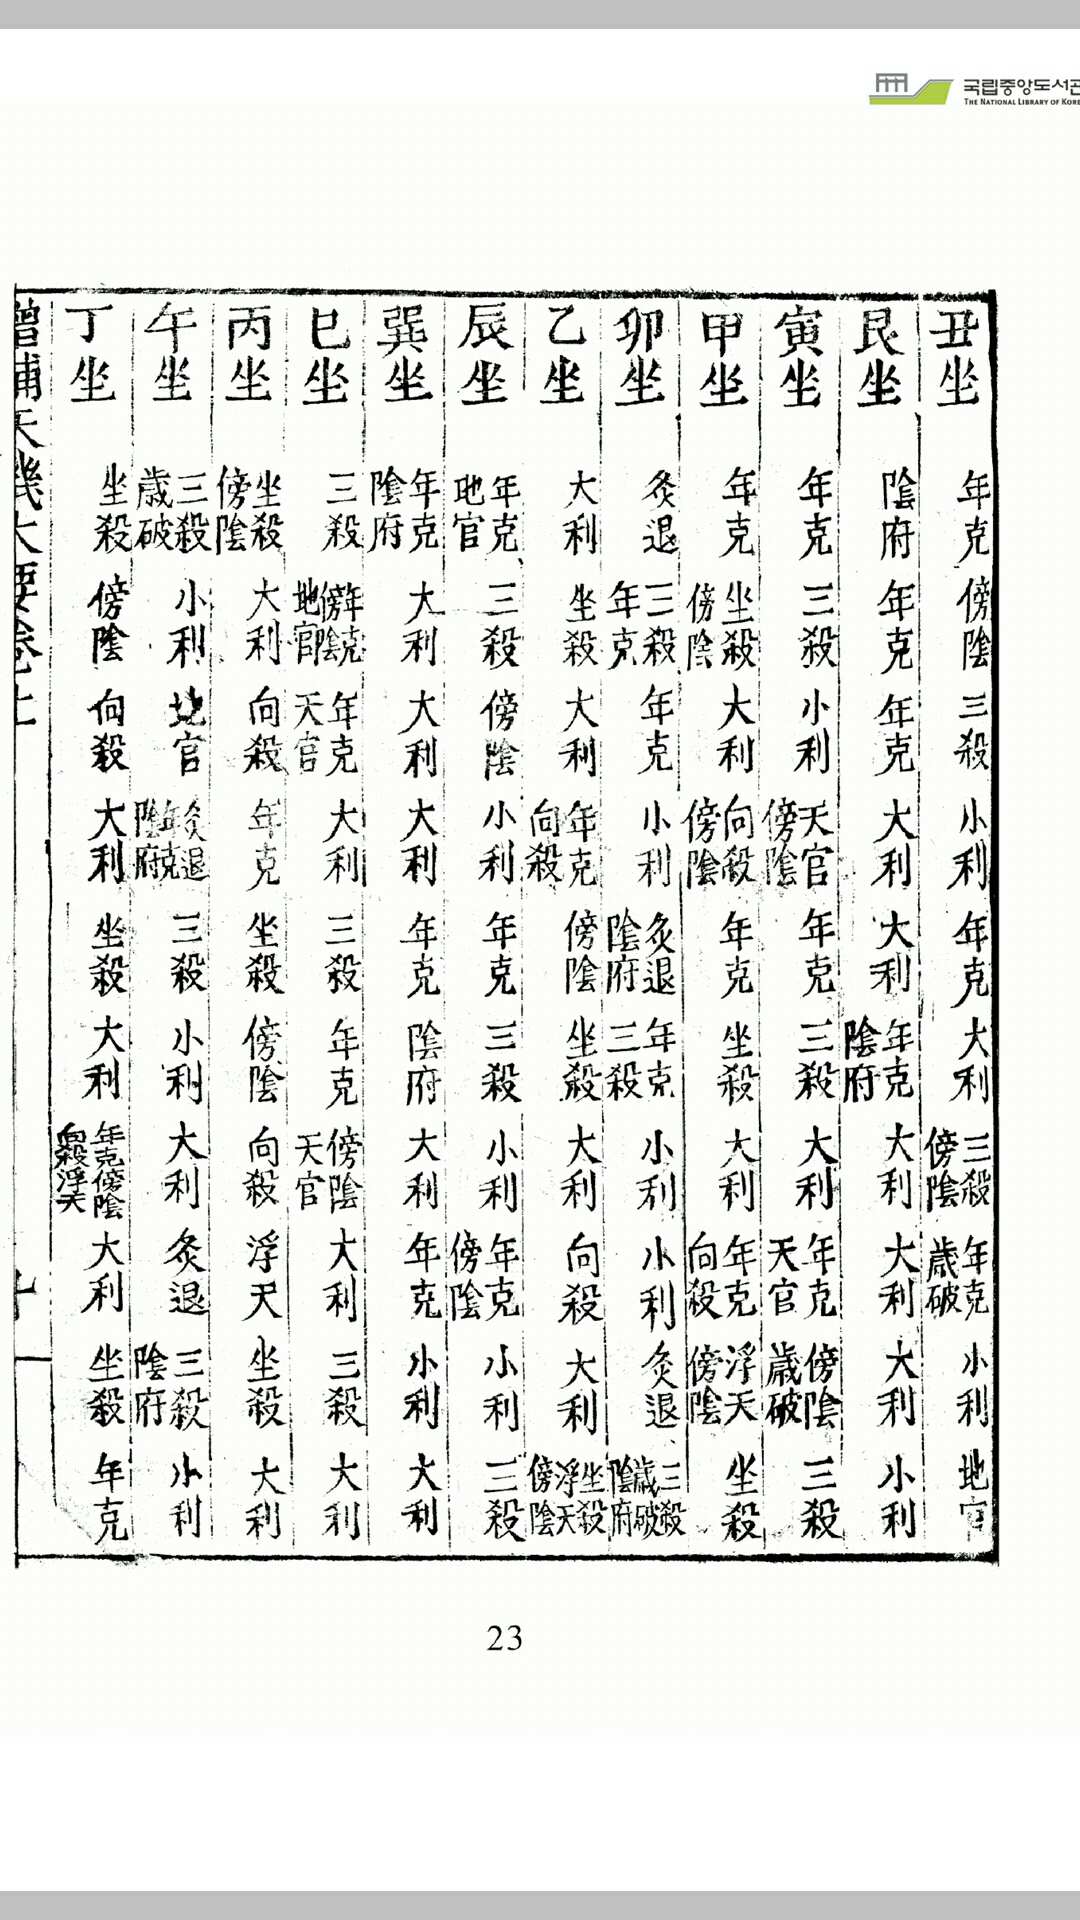 국립중앙도서관
THE NATIONAL LIBRARY OF KOREA
丑坐 年克 傍陰 三殺 小利 年克 大利 三殺傍陰 年克歲破 小利 地官
艮坐 陰府 年克 年克 大利 大利 年克陰府 大利 大利 大利 小利
寅坐 年克 三殺 小利 天官傍陰 年克 三殺 大利 年克天官 傍陰歲破 三殺
甲坐 年克 坐殺傍陰 大利 向殺傍陰 年克 坐殺 大利 年克向殺 浮天傍陰 坐殺
卯坐 灸退 三殺年克 年克 小利 灸退陰府 年克三殺 小利 小利 灸退 三殺歲破陰府
乙坐 大利 坐殺 大利 年克向殺 傍陰 坐殺 大利 向殺 大利 坐殺浮天傍陰
辰坐 年克地官 三殺 傍陰 小利 年克 三殺 小利 年克傍陰 小利 三殺
巽坐 年克陰府 大利 大利 大利 年克 陰府 大利 年克 小利 大利
巳坐 三殺 年克傍陰地官 年克天官 大利 三殺 年克 傍陰天官 大利 三殺 大利
丙坐 坐殺傍陰 大利 向殺 年克 坐殺 傍陰 向殺 浮天 坐殺 大利
午坐 三殺歲破 小利 地官 灸退年克陰府 三殺 小利 大利 灸退 三殺陰府 小利
丁坐 坐殺 傍陰 向殺 大利 坐殺 大利 年克傍陰向殺浮天 大利 坐殺 年克
增補天機大要卷上 十
23